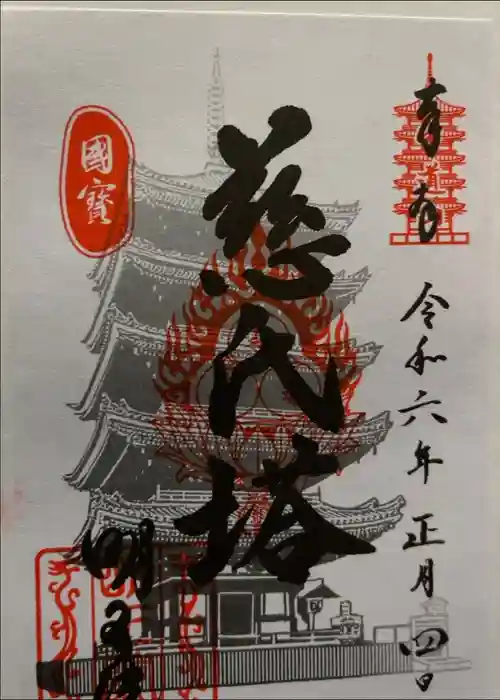 奉拝
令和六年正月四日
慈氏塔
國寶
明王院